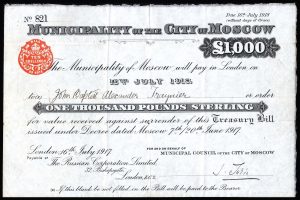 No 821
Due 16th July 1918
(without days of Grace)
MUNICIPALITY OF THE CITY OF MOSCOW
£1,000
The Municipality of Moscow will pay in London on
12TH JULY 1918.
to John Baptist Alexander or order
ONE THOUSAND POUNDS STERLING
for value received against surrender of this Treasury Bill
issued under Decree dated Moscow 7th/20th June 1917.
London, 16th July, 1917.
FOR AND ON BEHALF OF
MUNICIPAL COUNCIL OF THE CITY OF MOSCOW
Payable at
The Russian Corporation Limited
32, Bishopsgate
London, E.C.2.
(a) If this blank be not filled in the Bill will be paid to the Bearer